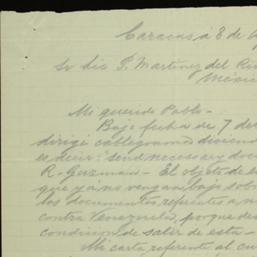 Caracas á 8 de
Sr dio P. Martínez del Rio
México
Mi querido Pablo -
Bajo fecha de 7 de
dirigí cablegrama diciendo
es decir: send necessary doc
R. Guzman - El objeto de
que ya no vengan bajo sob
los documentos referentes a n
contra Venezuela, porque des
condicion de salir de esta -
Mi carta referente al cu